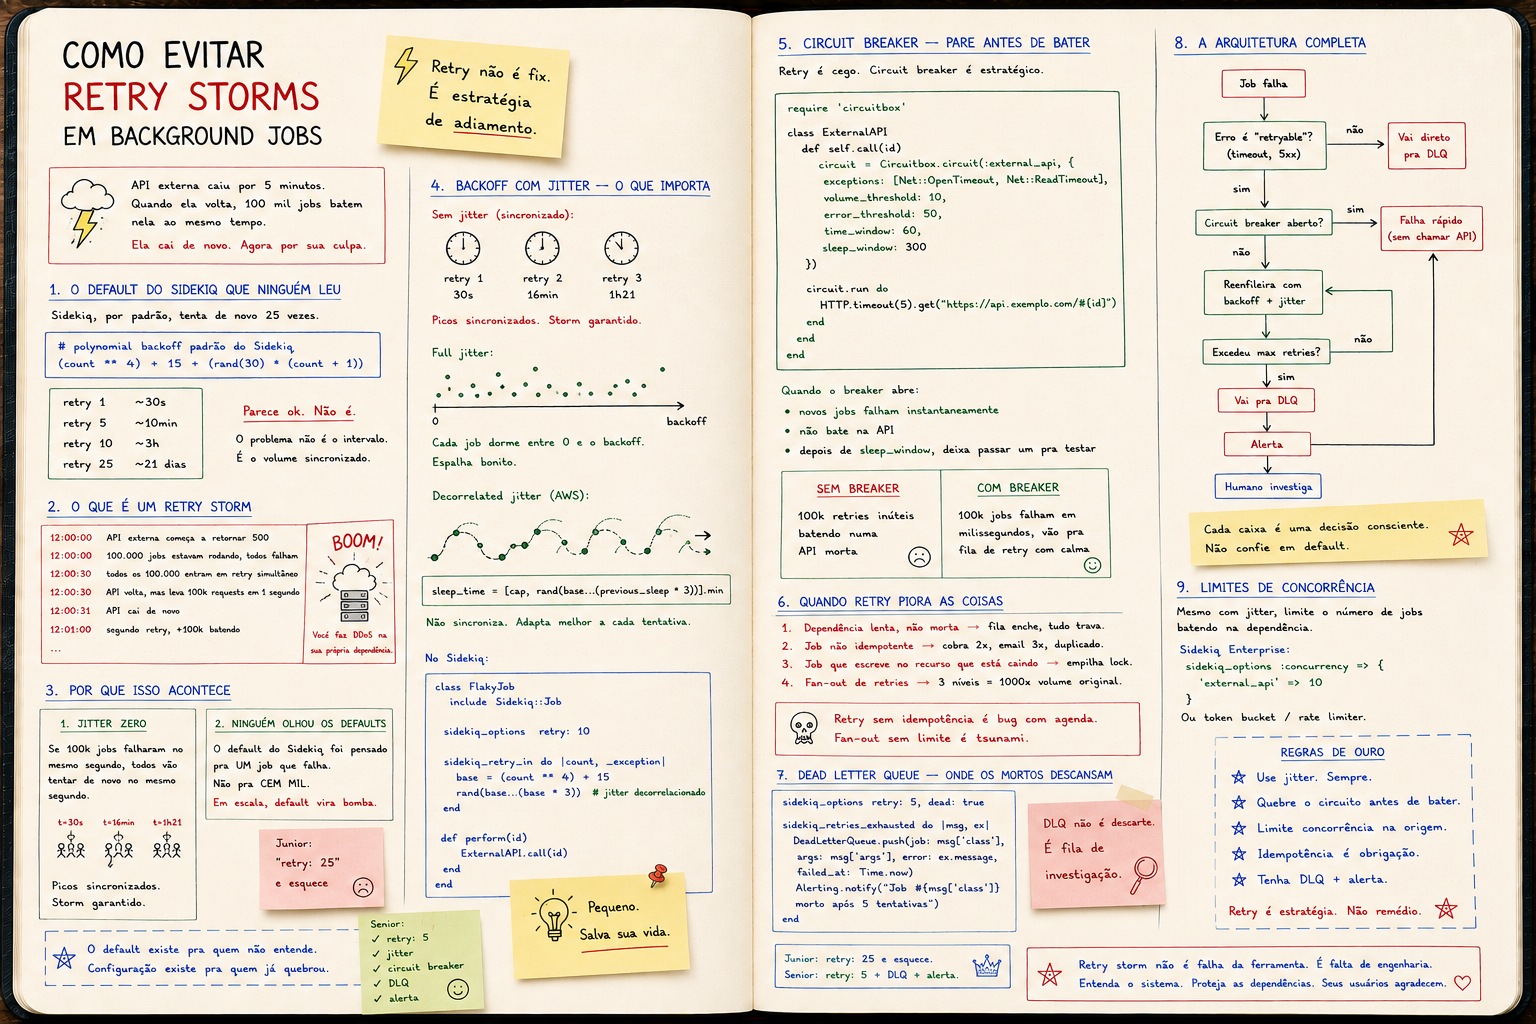 COMO EVITAR
RETRY STORMS
EM BACKGROUND JOBS
Retry não é fix.
É estratégia
de adiamento.
API externa caiu por 5 minutos.
Quando ela volta, 100 mil jobs batem
nela ao mesmo tempo.
Ela cai de novo. Agora por sua culpa.
1. O DEFAULT DO SIDEKIQ QUE NINGUÉM LEU
Sidekiq, por padrão, tenta de novo 25 vezes.
# polynomial backoff padrão do Sidekiq
(count ** 4) + 15 + (rand(30) * (count + 1))
retry 1 ~30s
retry 5 ~10min
retry 10 ~3h
retry 25 ~21 dias
Parece ok. Não é.
O problema não é o intervalo.
É o volume sincronizado.
2. O QUE É UM RETRY STORM
12:00:00 API externa começa a retornar 500
12:00:00 100.000 jobs estavam rodando, todos falham
12:00:30 todos os 100.000 entram em retry simultâneo
12:00:30 API volta, mas leva 100k requests em 1 segundo
12:00:31 API cai de novo
12:01:00 segundo retry, +100k batendo
...
BOOM!
Você faz DDoS na
sua própria dependência.
3. POR QUE ISSO ACONTECE
1. JITTER ZERO
Se 100k jobs falharam no
mesmo segundo, todos vão
tentar de novo no mesmo
segundo.
t=30s t=16min t=1h21
Picos sincronizados.
Storm garantido.
2. NINGUÉM OLHOU OS DEFAULTS
O default do Sidekiq foi pensado
pra UM job que falha.
Não pra CEM MIL.
Em escala, default vira bomba.
Junior:
"retry: 25"
e esquece
O default existe pra quem não entende.
Configuração existe pra quem já quebrou.
Senior:
✓ retry: 5
✓ jitter
✓ circuit breaker
✓ DLQ
✓ alerta
4. BACKOFF COM JITTER — O QUE IMPORTA
Sem jitter (sincronizado):
retry 1 retry 2 retry 3
30s 16min 1h21
Picos sincronizados. Storm garantido.
Full jitter:
0 backoff
Cada job dorme entre 0 e o backoff.
Espalha bonito.
Decorrelated jitter (AWS):
sleep_time = [cap, rand(base...(previous_sleep * 3))].min
Não sincroniza. Adapta melhor a cada tentativa.
No Sidekiq:
class FlakyJob
include Sidekiq::Job
sidekiq_options retry: 10
sidekiq_retry_in do |count, _exception|
base = (count ** 4) + 15
rand(base...(base * 3)) # jitter decorrelacionado
end
def perform(id)
ExternalAPI.call(id)
end
end
Pequeno.
Salva sua vida.
5. CIRCUIT BREAKER — PARE ANTES DE BATER
Retry é cego. Circuit breaker é estratégico.
require 'circuitbox'
class ExternalAPI
def self.call(id)
circuit = Circuitbox.circuit(:external_api, {
exceptions: [Net::OpenTimeout, Net::ReadTimeout],
volume_threshold: 10,
error_threshold: 50,
time_window: 60,
sleep_window: 300
})
circuit.run do
HTTP.timeout(5).get("https://api.exemplo.com/#{id}")
end
end
end
Quando o breaker abre:
• novos jobs falham instantaneamente
• não bate na API
• depois de sleep_window, deixa passar um pra testar
SEM BREAKER
100k retries inúteis
batendo numa
API morta
COM BREAKER
100k jobs falham em
milissegundos, vão pra
fila de retry com calma
6. QUANDO RETRY PIORA AS COISAS
1. Dependência lenta, não morta → fila enche, tudo trava.
2. Job não idempotente → cobra 2x, email 3x, duplicado.
3. Job que escreve no recurso que está caindo → empilha lock.
4. Fan-out de retries → 3 níveis = 1000x volume original.
Retry sem idempotência é bug com agenda.
Fan-out sem limite é tsunami.
7. DEAD LETTER QUEUE — ONDE OS MORTOS DESCANSAM
sidekiq_options retry: 5, dead: true
sidekiq_retries_exhausted do |msg, ex|
DeadLetterQueue.push(job: msg['class'],
args: msg['args'], error: ex.message,
failed_at: Time.now)
Alerting.notify("Job #{msg['class']}
morto após 5 tentativas")
end
DLQ não é descarte.
É fila de
investigação.
Junior: retry: 25 e esquece.
Senior: retry: 5 + DLQ + alerta.
8. A ARQUITETURA COMPLETA
Job falha
Erro é "retryable"?
(timeout, 5xx)
não
Vai direto
pra DLQ
sim
Circuit breaker aberto?
sim
Falha rápido
(sem chamar API)
não
Reenfileira com
backoff + jitter
Excedeu max retries?
não
sim
Vai pra DLQ
Alerta
Humano investiga
Cada caixa é uma decisão consciente.
Não confie em default.
9. LIMITES DE CONCORRÊNCIA
Mesmo com jitter, limite o número de jobs
batendo na dependência.
Sidekiq Enterprise:
sidekiq_options :concurrency => {
'external_api' => 10
}
Ou token bucket / rate limiter.
REGRAS DE OURO
Use jitter. Sempre.
Quebre o circuito antes de bater.
Limite concorrência na origem.
Idempotência é obrigação.
Tenha DLQ + alerta.
Retry é estratégia. Não remédio.
Retry storm não é falha da ferramenta. É falta de engenharia.
Entenda o sistema. Proteja as dependências. Seus usuários agradecem.